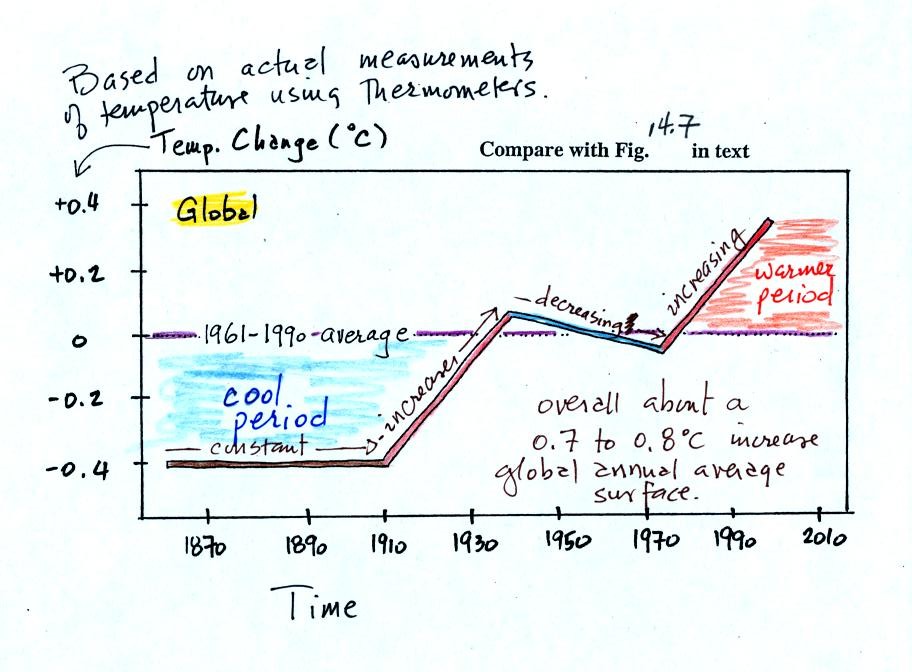 Based on actual measurements
of temperature using Thermometers.
Temp. Change (°C)
Compare with Fig. 14.7 in text
+0.4
Global
increasing
+0.2
warmer
period
decreasing
0
1961-1990 average
increases
-0.2
cool
period
overall about a
constant
0.7 to 0.8°C increase
-0.4
global annual average
surface.
1870 1890 1910 1930 1950 1970 1990 2010
Time